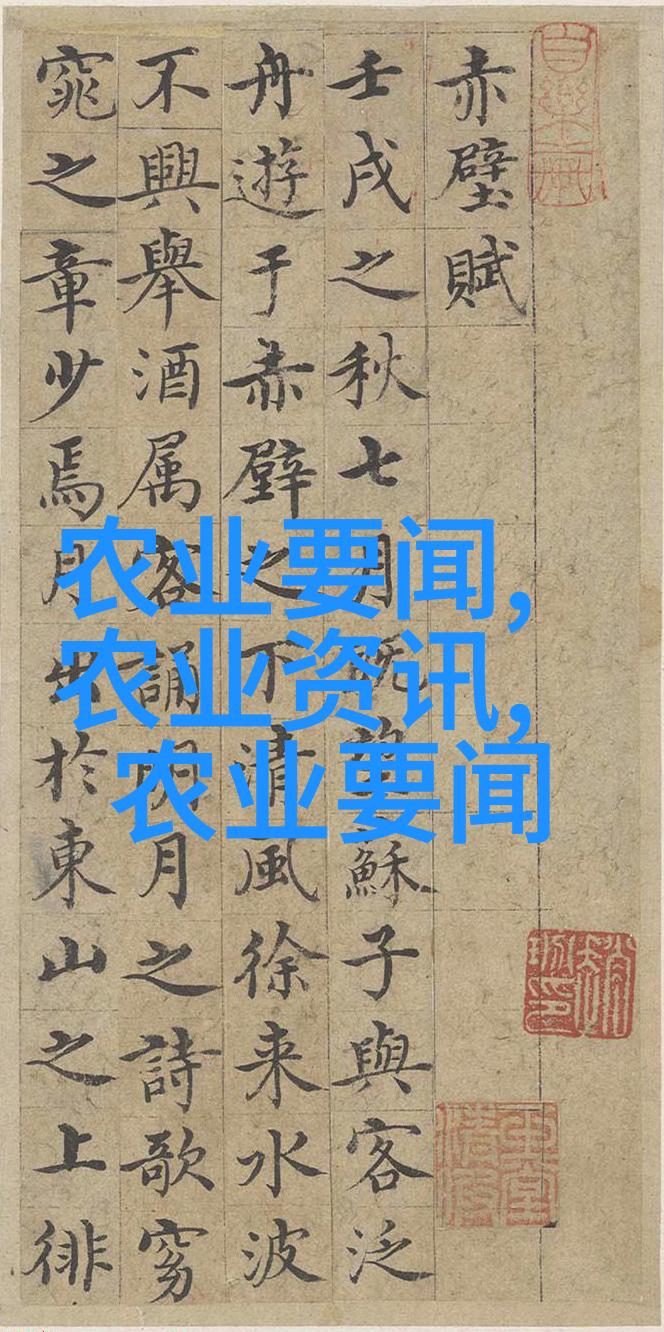 赤壁賦
壬戌之秋七月既望蘇子與客泛
舟遊于赤壁之下清風徐来水波
不興舉酒属客誦明月之詩歌窈
窕之章少焉月出於東山之上徘
农业要闻,
农业资讯,
农业要闻